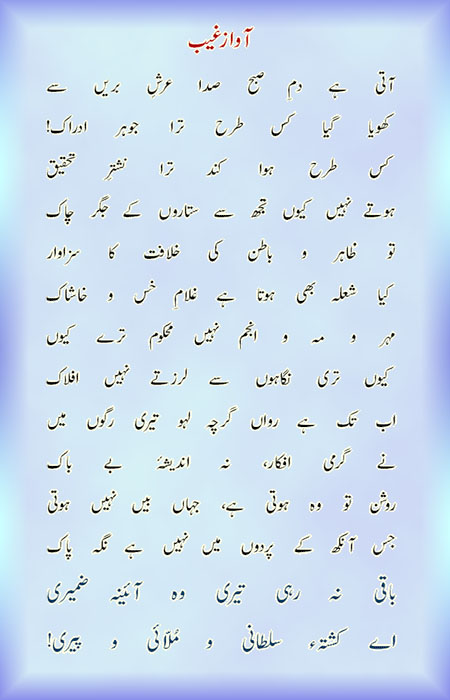 آوازِ غیب
آتی ہے دمِ صبح صدا عرشِ بریں سے
کھویا گیا کس طرح ترا جوہرِ ادراک!
کس طرح ہوا کند ترا نشترِ تحقیق
ہوتے نہیں کیوں تجھ سے ستاروں کے جگر چاک
تو ظاہر و باطن کی خلافت کا سزاوار
کیا شعلہ بھی ہوتا ہے غلامِ خس و خاشاک
مہر و مہ و انجم نہیں محکوم ترے کیوں
کیوں تری نگاہوں سے لرزتے نہیں افلاک
اب تک ہے رواں گرچہ لہو تیری رگوں میں
نے گرمی افکار، نہ اندیشۂ بے باک
روشن تو وہ ہوتی ہے، جہاں بیں نہیں ہوتی
جس آنکھ کے پردوں میں نہیں ہے نگہِ پاک
باقی نہ رہی تیری وہ آئینہ ضمیری
اے کشتہء سلطانی و مُلّائی و پیری!